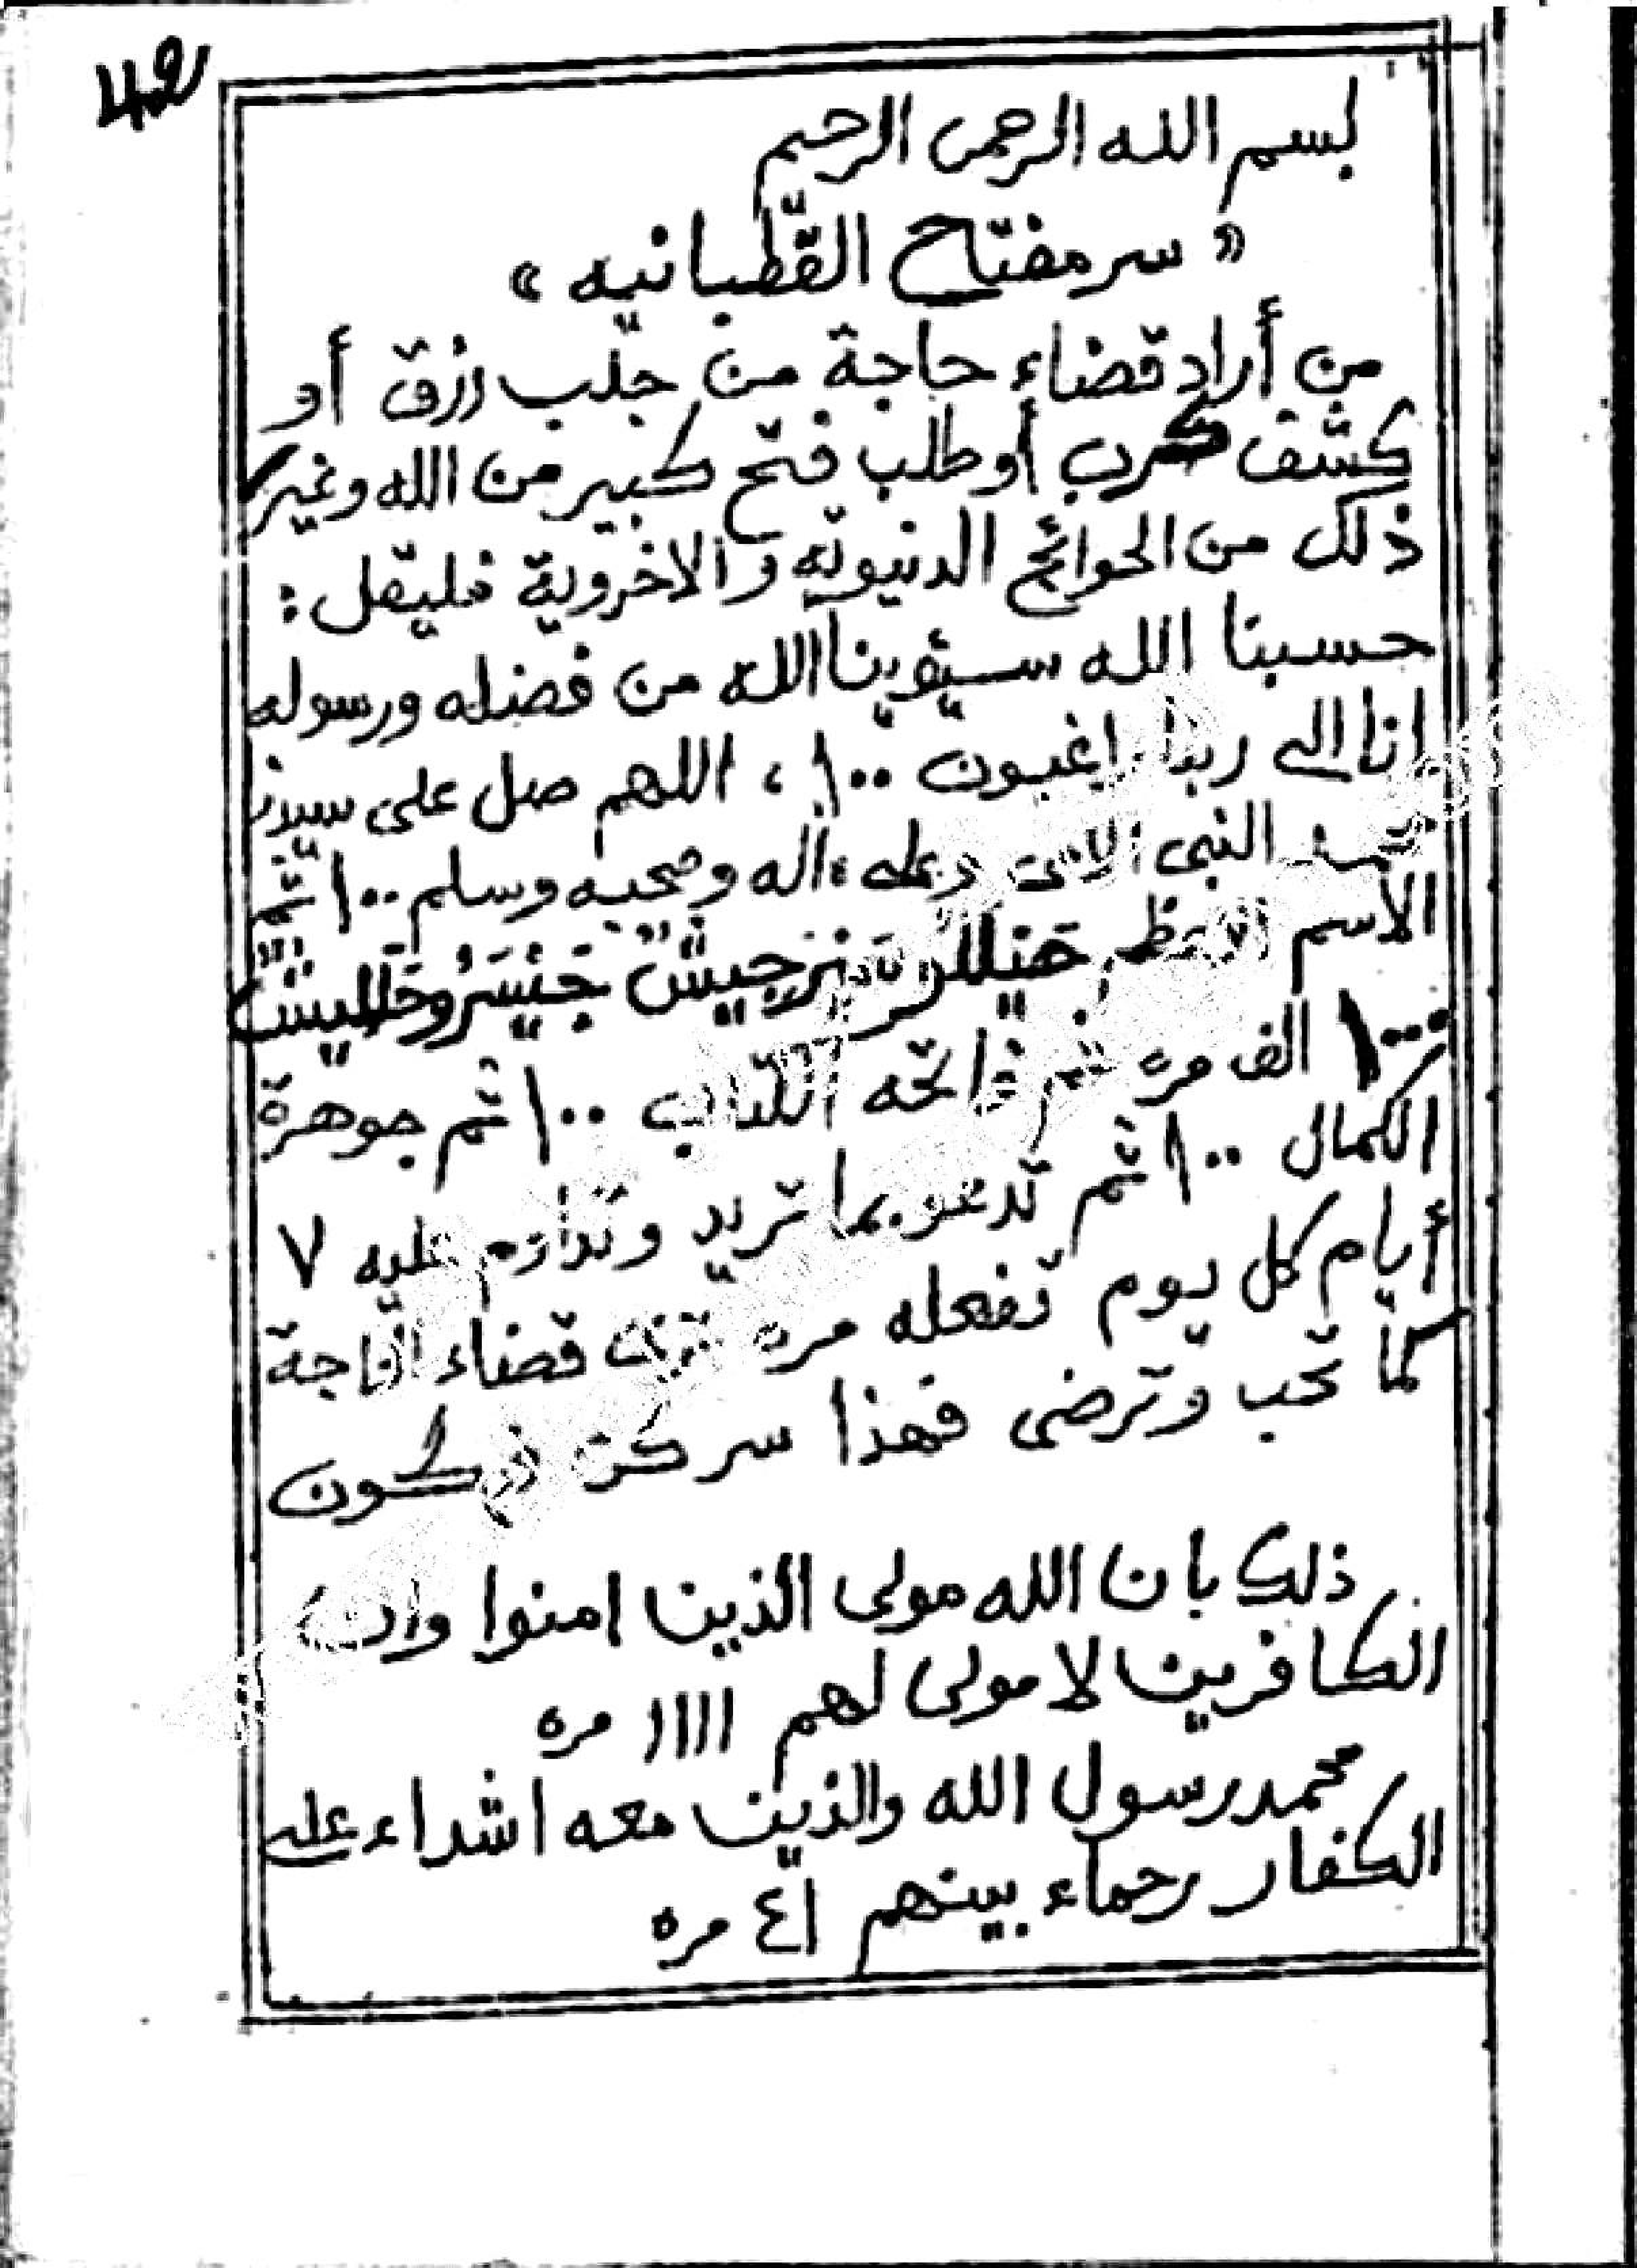 42
بسم الله الرحمن الرحيم
« سر مفتاح القطبانيه »
من أراد قضاء حاجة من جلب رزق أو
كشف كرب أو طلب فتح كبير من الله وغير
ذلك من الحوائج الدنيويه والاخروية فليقل :
حسبنا الله سيؤتينا الله من فضله ورسوله
انا الى ربنا راغبون ١٠٠ ، اللهم صل على سيدنا
النبي الامي وعلى ءاله وصحبه وسلم ١٠٠ ثم
الاسم الاعظم
١٠٠٠ الف مره ثم فاتحه الكتاب ١٠٠ ثم جوهرة
الكمال ١٠٠ ثم تدعو بما تريد وتداوم عليه ٧
أيام كل يوم تفعله مره قضاء الحاجة
كما تحب وترضى فهذا سر كن فيكون
ذلك بان الله مولى الذين امنوا وان
الكافرين لا مولى لهم ١١١١ مره
محمد رسول الله والذين معه اشداء على
الكفار رحماء بينهم ٤١ مره